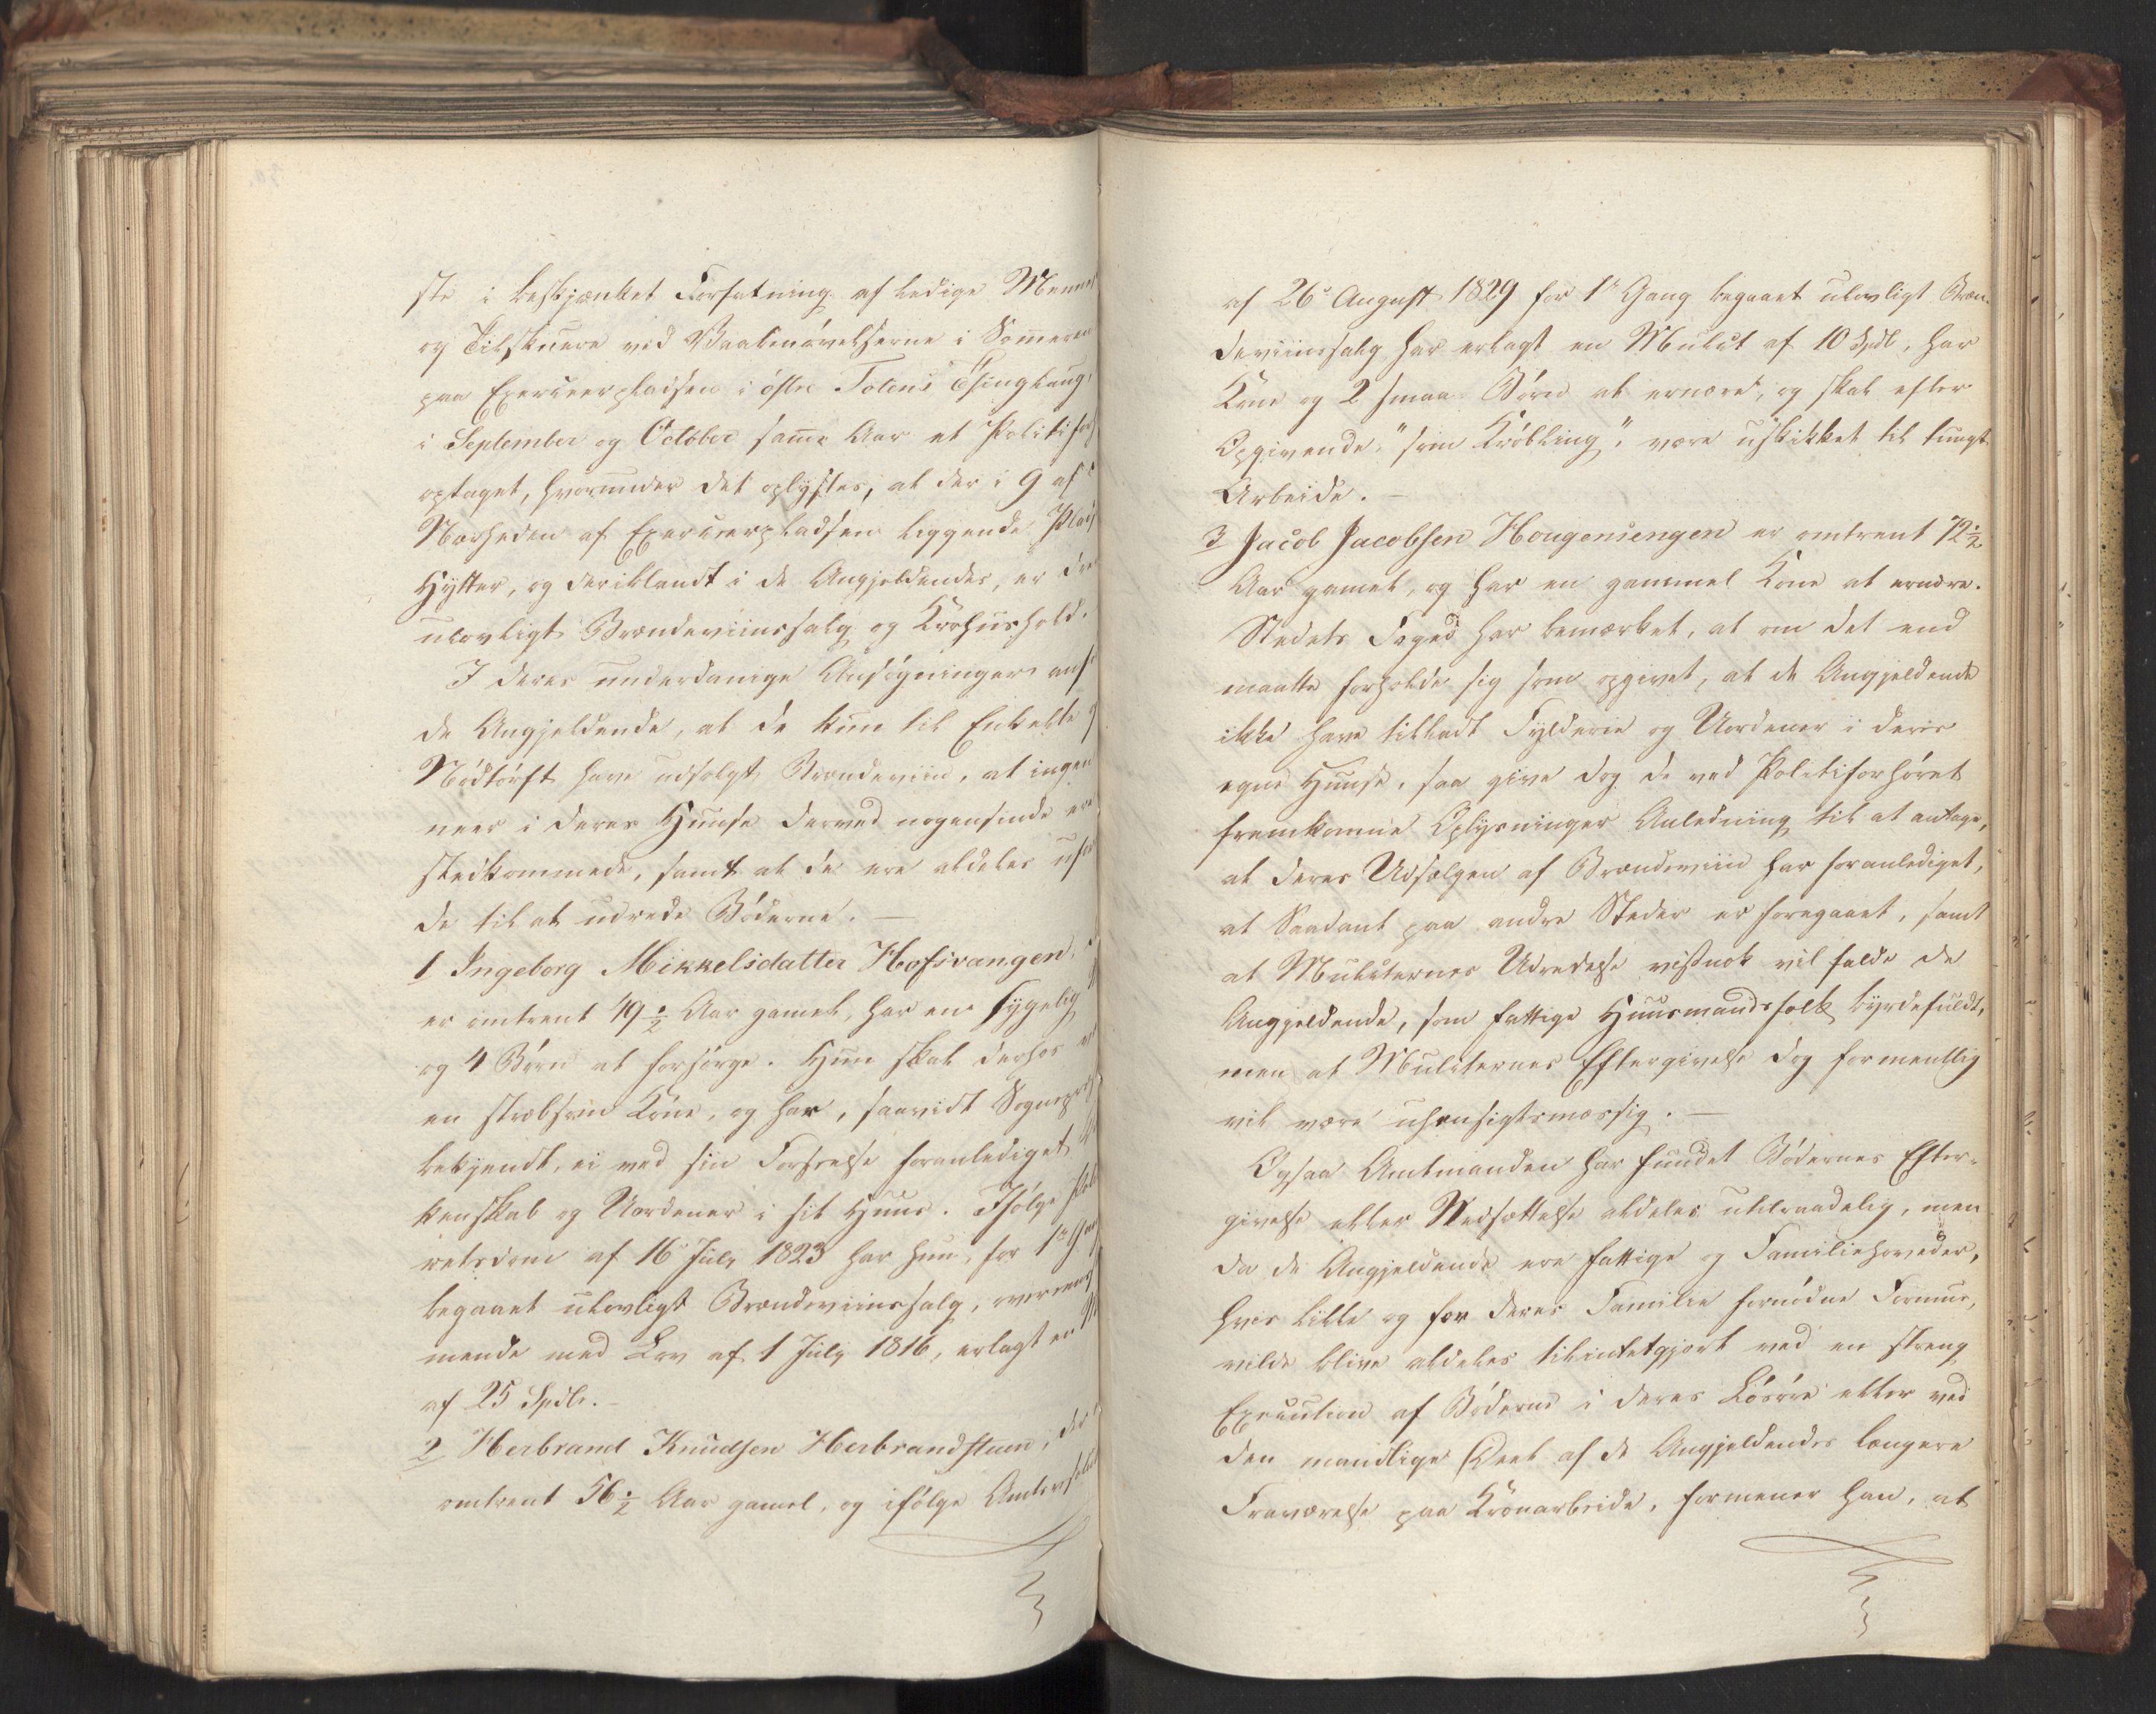 ste i beskjænket Forfatning af ledige
og Tilskuere ved Vaabenøvelserne i Sommeren
paa Exerceerpladsen i østre Totens Thinglaug,
i September og October samme Aar et
optaget, hvorunder det oplystes, at der i 9 af
Nærheden af Exerceerpladsen liggende
Hytter, og deriblandt i de Angjeldendes, er
ulovligt Brændeviinssalg og Krohuushold.
I deres underdanige Ansøgninger
de Angjeldende, at de kun til Enkeltes
Nødtørft have udsolgt Brændeviin, at ingen
neer i deres Huuse derved nogensinde ere
stedkommede, samt at de ere aldeles
de til at udrede Bøderne. —
1 Ingeborg Mikkelsdatter Hofsvangen,
er omtrent 49½ Aar gamel, har en sygelig
og 4 Børn at forsørge. Hun skal derhos
en stræbsom Kone, og har, saavidt
bekjendt, ei ved sin Forseelse foranlediget
kenskab og Uordener i sit Huus. Ifølge
retsdom af 16 July 1823 har hun, for 1ste
begaaet ulovligt Brændeviinssalg,
mende med Lov af 1 July 1816, erlagt en
af 25 Spdlr. —
2 Herbrand Knudsen Herbrandstuen, der
omtrent 56½ Aar gamel, og ifølge
af 26de August 1829 for 1ste Gang begaaet ulovligt Bræn-
deviinssalg har erlagt en Mulct af 10 Spdl, har
Kone og 2 smaa Børn at ernære, og skal efter
Opgivende, "som Krøbling", være uskikket til tungt
Arbeide. —
3 Jacob Jacobsen Hougensengen er omtrent 72½
Aar gamel, og har en gammel Kone at ernære.
Stedets Foged har bemærket, at om det end
maatte forholde sig som opgivet, at de Angjeldende
ikke have tilladt Fylderie og Uordener i deres
egne Huuse, saa give dog de ved Politiforhøret
fremkomne Oplysninger Anledning til at antage,
at deres Udsælgen af Brændeviin har foranlediget,
at Saadant paa andre Steder er foregaaet, samt
at Mulcternes Udredelse vistnok vil falde de
Angjeldende, som fattige Huusmandsfolk byrdefuldt,
men at Mulcternes Eftergivelse dog formentlig
vil være uhensigtsmæssig. —
Ogsaa Amtmanden har fundet Bødernes Efter-
givelse eller Nedsættelse aldeles utilraadelig, men
da de Angjeldende ere fattige og Familiehoveder,
hvis lille og for deres Familie fornødne Formue,
vilde blive aldeles tilintetgjort ved en streng
Execution af Bøderne i deres Løsøre eller ved
den mandlige Deel af de Angjeldendes længere
Fraværelse paa Kronarbeide, formener han, at